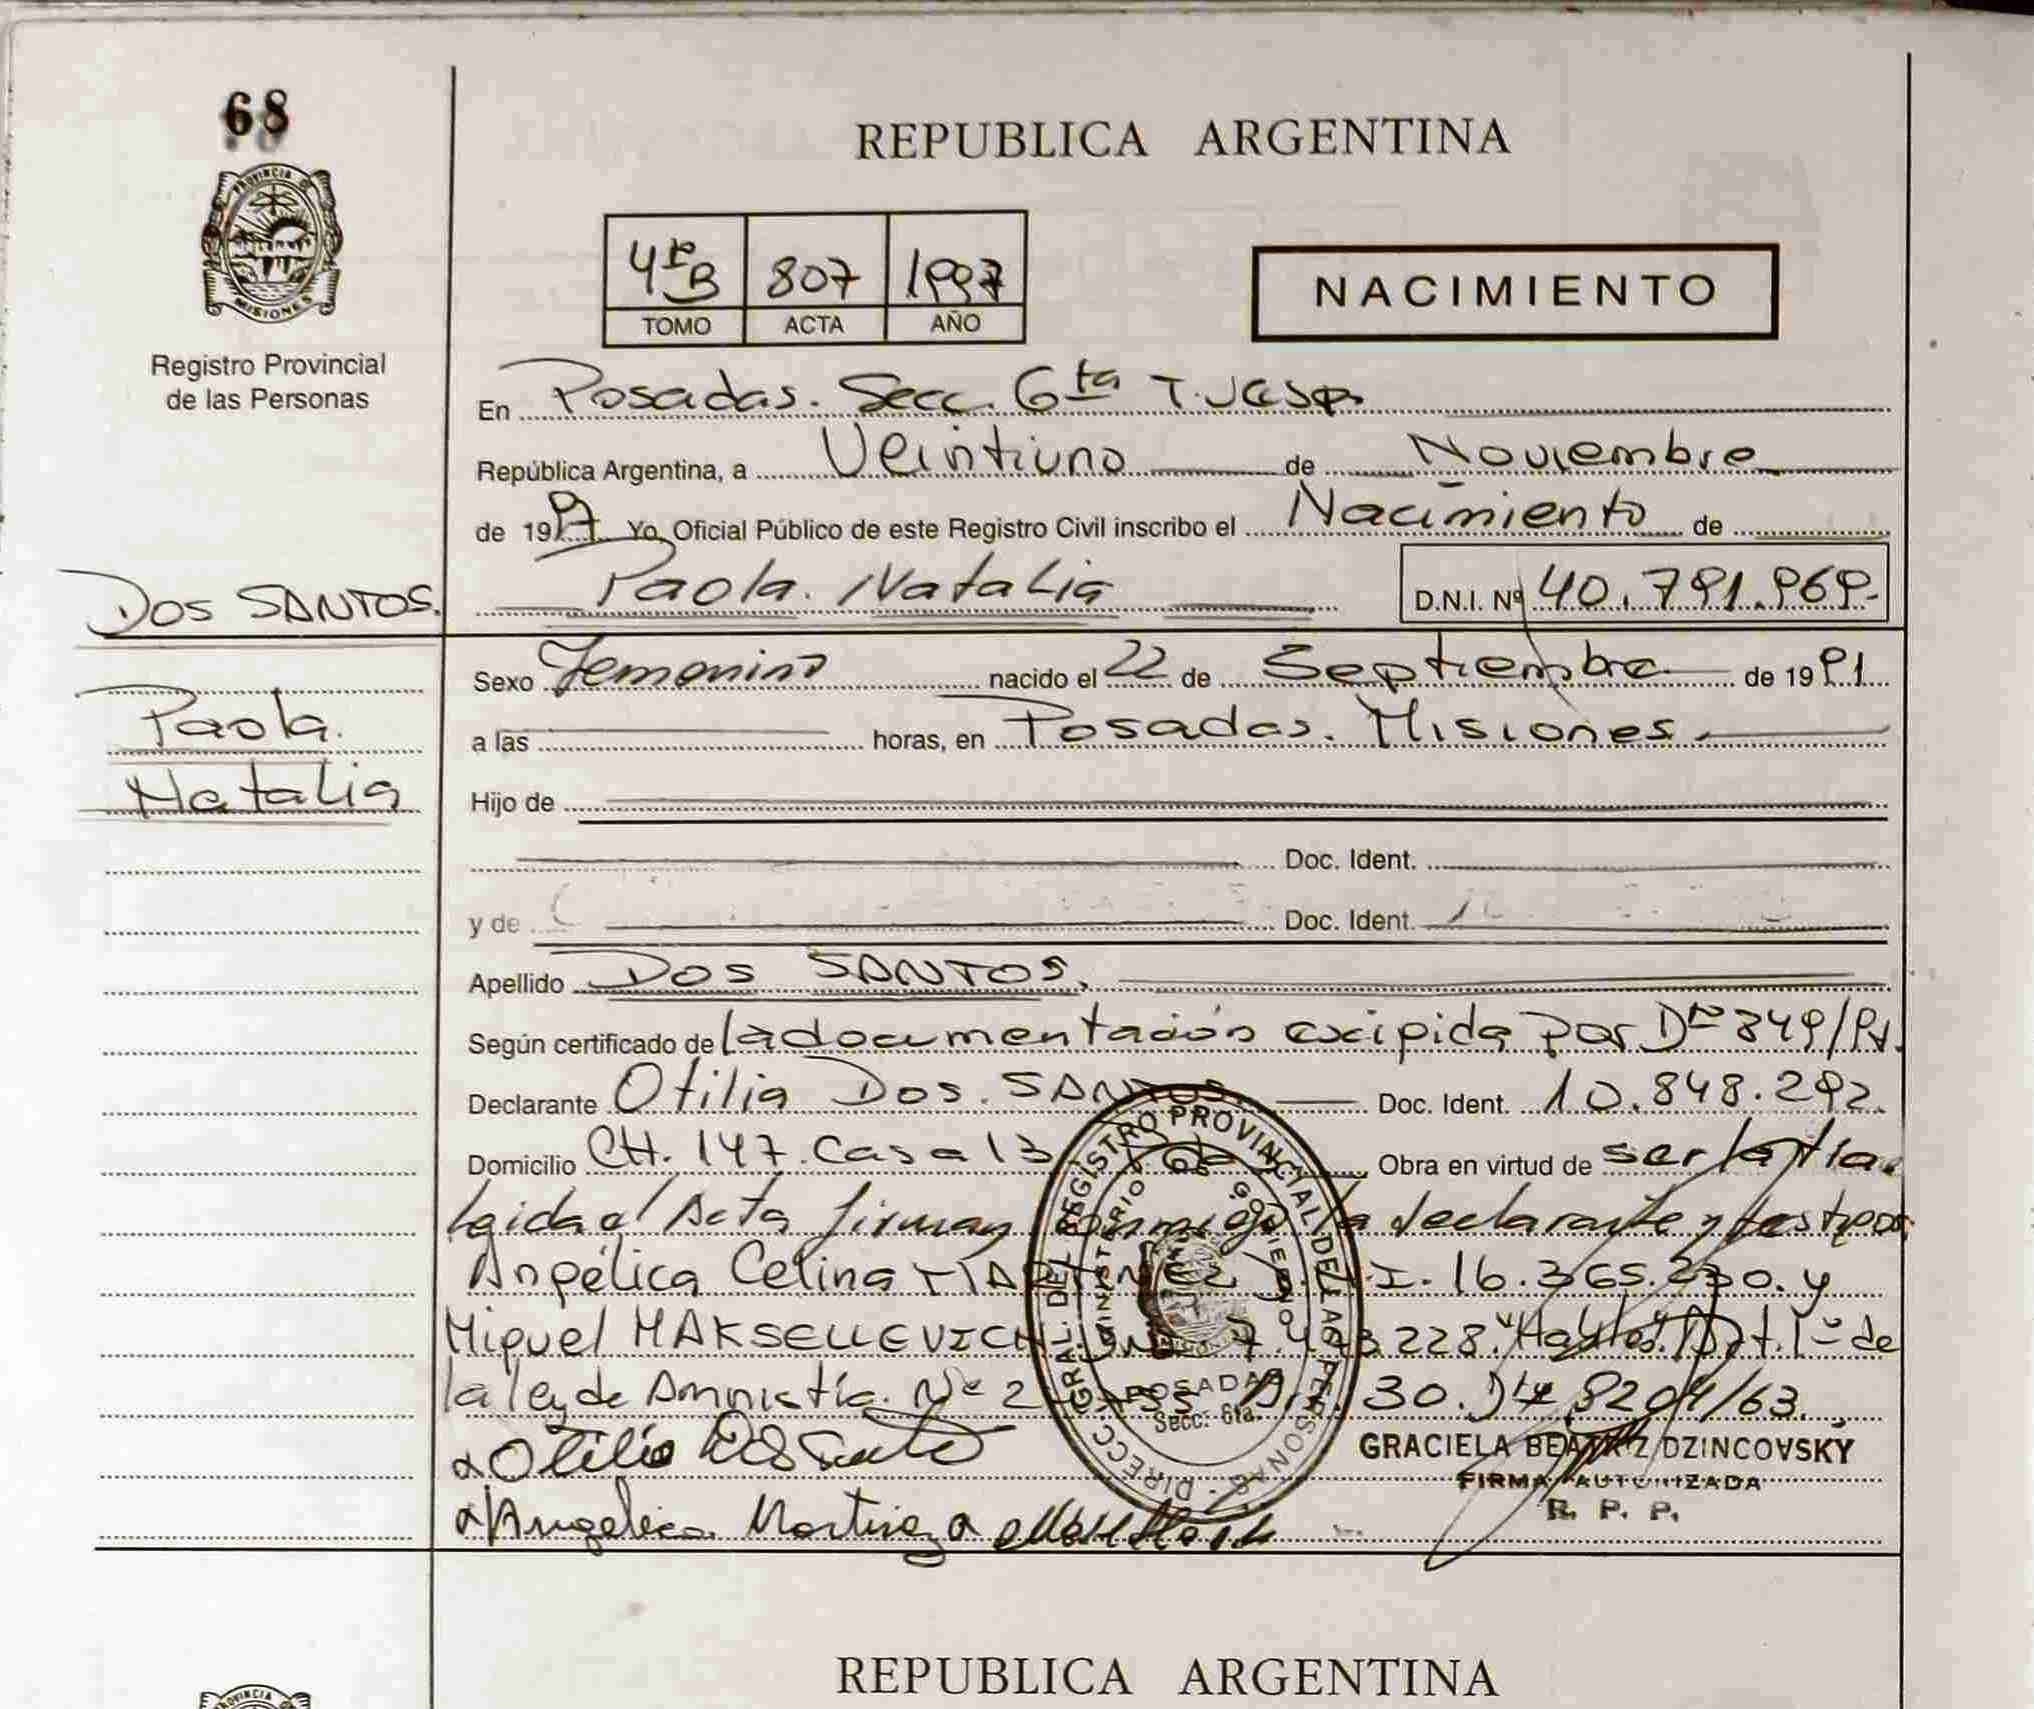 68
PROVINCIA DE
MISIONES
Registro Provincial
de las Personas
REPUBLICA ARGENTINA
4º B 807 1997
TOMO ACTA AÑO
NACIMIENTO
En Posadas. Secc. 6ta
República Argentina, a Veintiuno de Noviembre
de 1997 Yo Oficial Público de este Registro Civil inscribo el Nacimiento de
DOS SANTOS.
Paola. Natalia
D.N.I. Nº 40.791.969.-
Paola.
Natalia
Sexo Femenino nacido el 22 de Septiembre de 1991
a las horas, en Posadas. Misiones.
Hijo de
Doc. Ident.
y de Doc. Ident.
Apellido DOS SANTOS.
Según certificado de la documentación exigida por 849/
Declarante Otilia Dos. SANTOS. Doc. Ident. 10.848.292.
Domicilio CH. 147. Casa 13 Obra en virtud de ser la tía.
Leida el Acta firman conmigo la declarante y testigos
Angélica Celina MARTINEZ D.N.I. 16.365.230. y
Miguel MAKSELLEVICH 228. Art. 1º de
la ley de Amnistía. Nº 30. 8204/63.
Otilia Dos Santos
GRACIELA BEATRIZ DZINCOVSKY
FIRMA AUTORIZADA
R. P. P.
Angelica Martinez
DIRECC. GRAL. DEL REGISTRO PROVINCIAL DE LAS PERSONAS
MINISTERIO DE GOBIERNO
POSADAS
Secc. 6ta.
REPUBLICA ARGENTINA
PROVINCIA